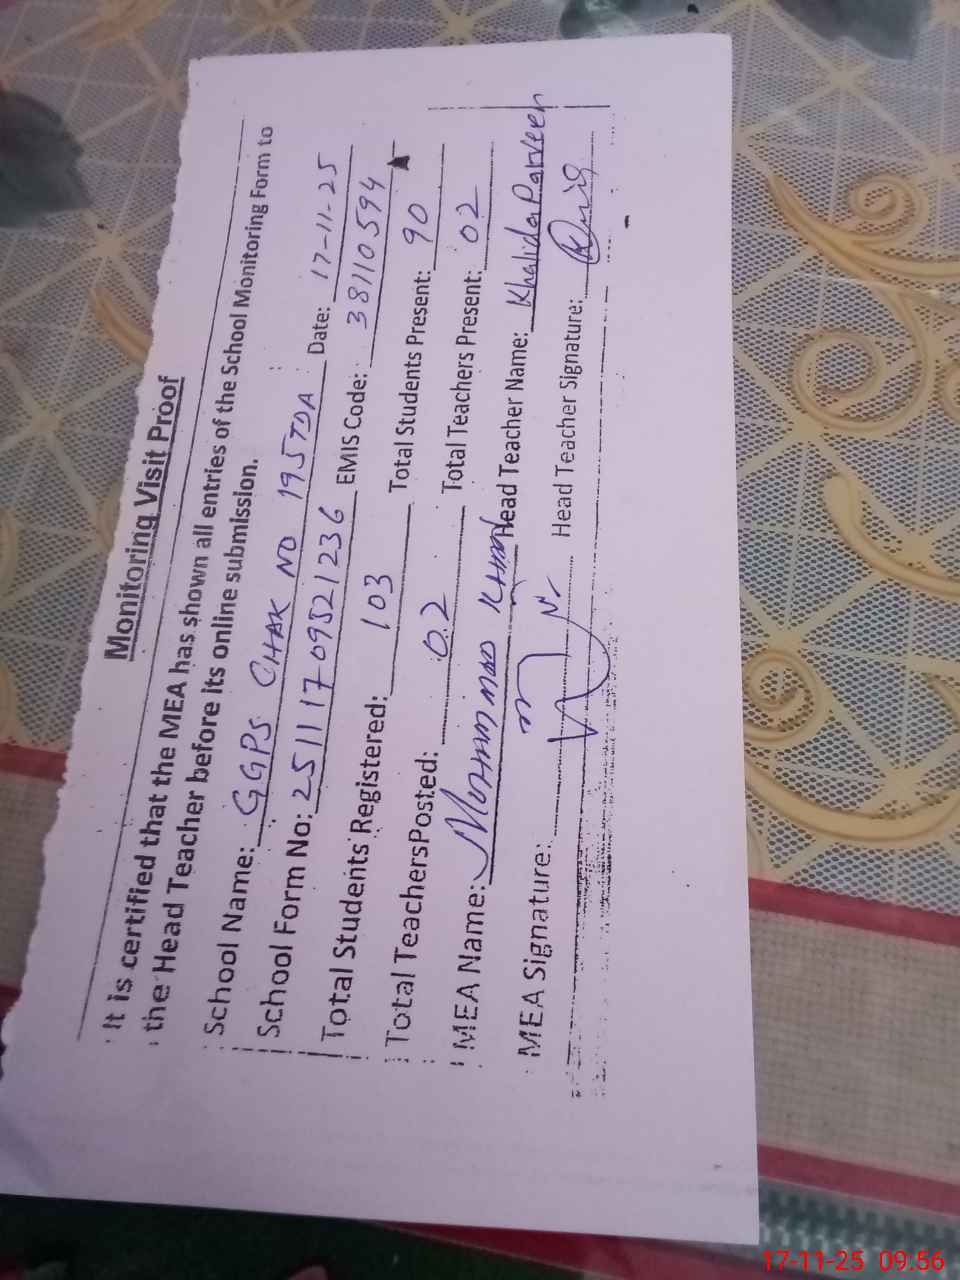 Monitoring Visit Proof
It is certified that the MEA has shown all entries of the School Monitoring Form to
the Head Teacher before its online submission.
School Name: GGPS CHAK NO 195 TDA Date: 17-11-25
School Form No: 251117 09521236 EMIS Code: 38110594
Total Students Registered: 103 Total Students Present: 90
Total Teachers Posted: 02 Total Teachers Present: 02
MEA Name: MOHAMMAD KHAN Head Teacher Name: Khalida Parveen
MEA Signature: Head Teacher Signature:
17-11-25 09:56